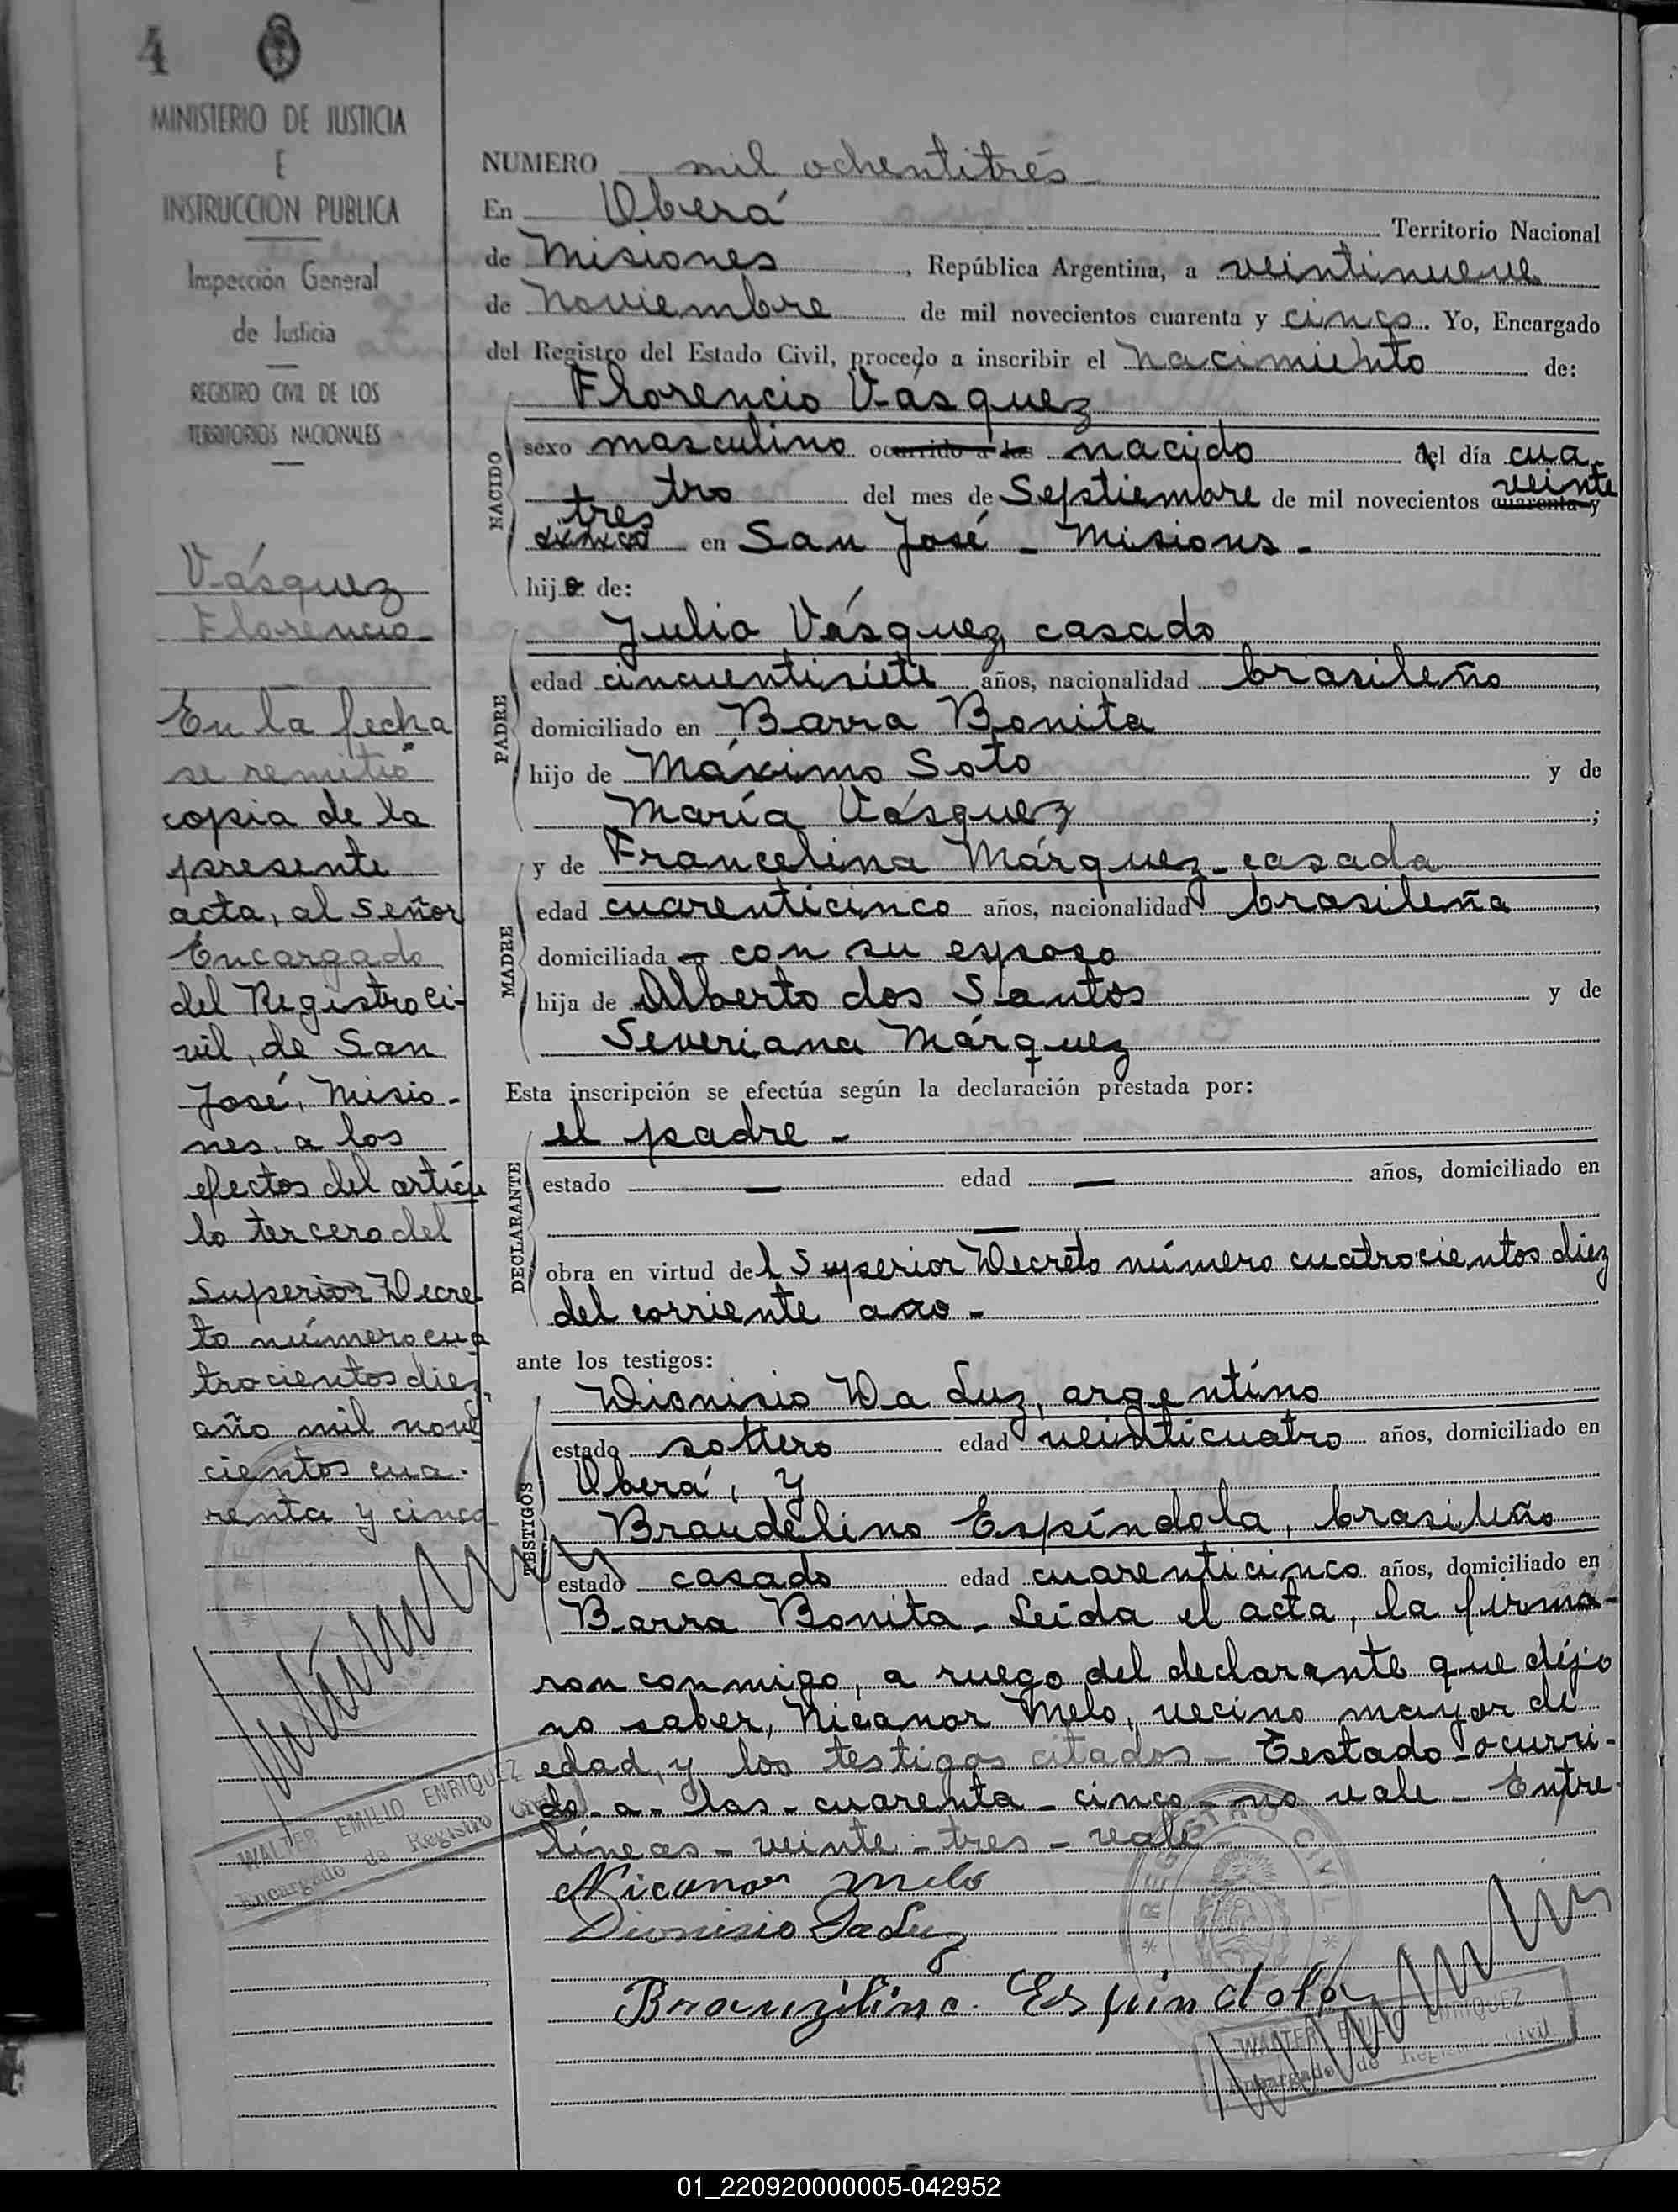 4
MINISTERIO DE JUSTICIA
E
INSTRUCCION PUBLICA
Inspección General
de Justicia
REGISTRO CIVIL DE LOS
TERRITORIOS NACIONALES
Vásquez
Florencio
En la fecha
se remitió
copia de la
presente
acta, al Señor
Encargado
del Registro Ci-
vil, de San
José, Misio-
nes, a los
efectos del artícu
lo tercero del
Superior Decre
to número cua
trocientos diez,
año mil nove
cientos cua-
renta y cinco
WALTER EMILIO ENRIQUEZ
Encargado de Registro Civil
NUMERO mil ochentitrés
En Oberá Territorio Nacional
de Misiones, República Argentina, a veintinueve
de Noviembre de mil novecientos cuarenta y cinco. Yo, Encargado
del Registro del Estado Civil, procedo a inscribir el nacimiento de:
Florencio Vásquez
NACIDO
sexo masculino ocurrido a las nacido del día cua-
tro del mes de Septiembre de mil novecientos cuarenta y veinte
tres
cinco en San José - Misions -
hijo de:
PADRE
Julio Vásquez, casado
edad cincuentisiete años, nacionalidad brasileño,
domiciliado en Barra Bonita
hijo de Máximo Soto y de
María Vásquez;
MADRE
y de Francelina Márquez - casada
edad cuarenticinco años, nacionalidad brasileña,
domiciliada - con su esposo
hija de Alberto dos Santos y de
Severiana Márquez
Esta inscripción se efectúa según la declaración prestada por:
DECLARANTE
el padre -
estado — edad — años, domiciliado en
—
obra en virtud del Superior Decreto número cuatrocientos diez
del corriente ano -
ante los testigos:
TESTIGOS
Dionisio Da Luz, argentino
estado soltero edad veinticuatro años, domiciliado en
Oberá, y
Braudelino Espíndola, brasileño
estado casado edad cuarenticinco años, domiciliado en
Barra Bonita - Leída el acta, la firma-
ron conmigo, a ruego del declarante que dijo
no saber, Nicanor Melo, vecino mayor de
edad, y los testigos citados - Testado - ocurri-
do - a - las - cuarenta - cinco - no vale - Entre
líneas - veinte - tres - vale
Nicanor Melo
Dionisio Da Luz
Brauzilino Espindola
REGISTRO CIVIL
WALTER EMILIO ENRIQUEZ
Encargado de Registro Civil
01_220920000005-042952